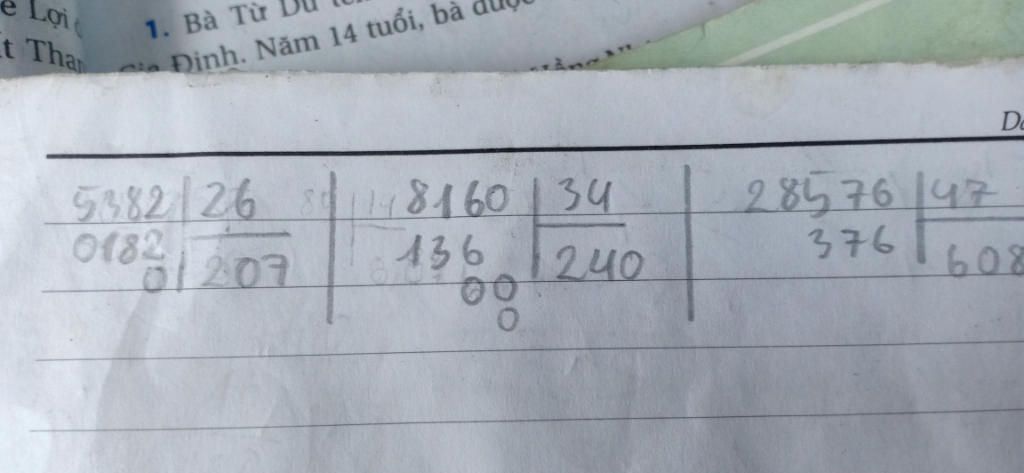 ê Lợi
1. Bà Từ Dũ
Định. Năm 14 tuổi, bà được
5382 26
0182 207
0
8160 34
136 240
00
0
28576 47
376 608